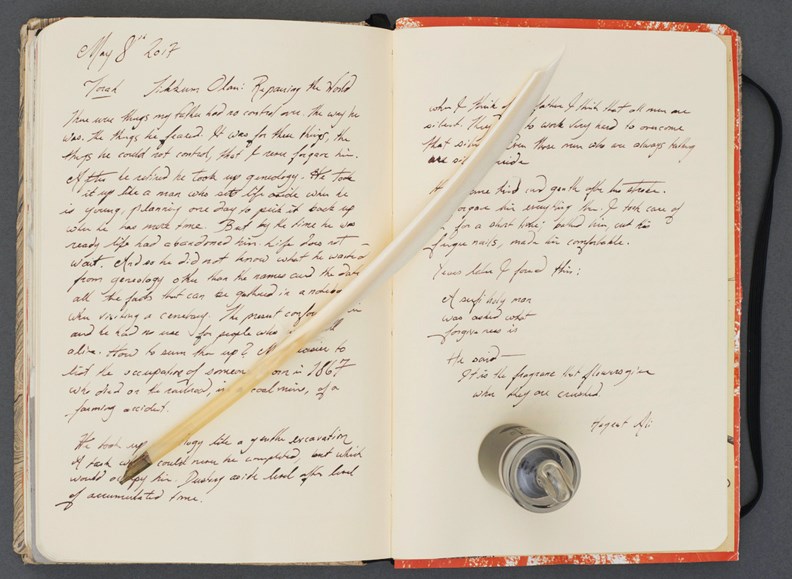 May 8th 2017
Torah Tikkun Olam: Repairing the World
There were things my father had no control over. The way he
was. The things he feared. It was for these things, the
things he could not control, that I never forgave him.
After he retired he took up geneology. He took
it up like a man who sets life aside when he
is young, planning one day to pick it back up
when he has more time. But by the time he was
ready life had abandoned him. Life does not
wait. And so he did not know what he wanted
from geneology other than the names and the dates
all the facts that can be gathered in a notebook
when visiting a cemetary. The present
and he had no use for people who
alive. How to sum them up? easier to
list the occupation of someone born in 1867
who died on the railroad, in a coal mine, of a
farming accident.
He took up like a gentle excavation
A task could never be completed but which
would occupy him. Dusting aside level after level
of accumulated time.
when I think of father I think that all men are
silent. They to work very hard to overcome
that Even those men who are always talking
are
kind and gentle after his stroke.
forgave him everything then. I took care of
for a short time; bathed him, cut his
finger nails, made him comfortable.
Years later I found this:
A sufi holy man
was asked what
forgiveness is
He said—
It is the fragrance that flowers give
when they are crushed.
Ali